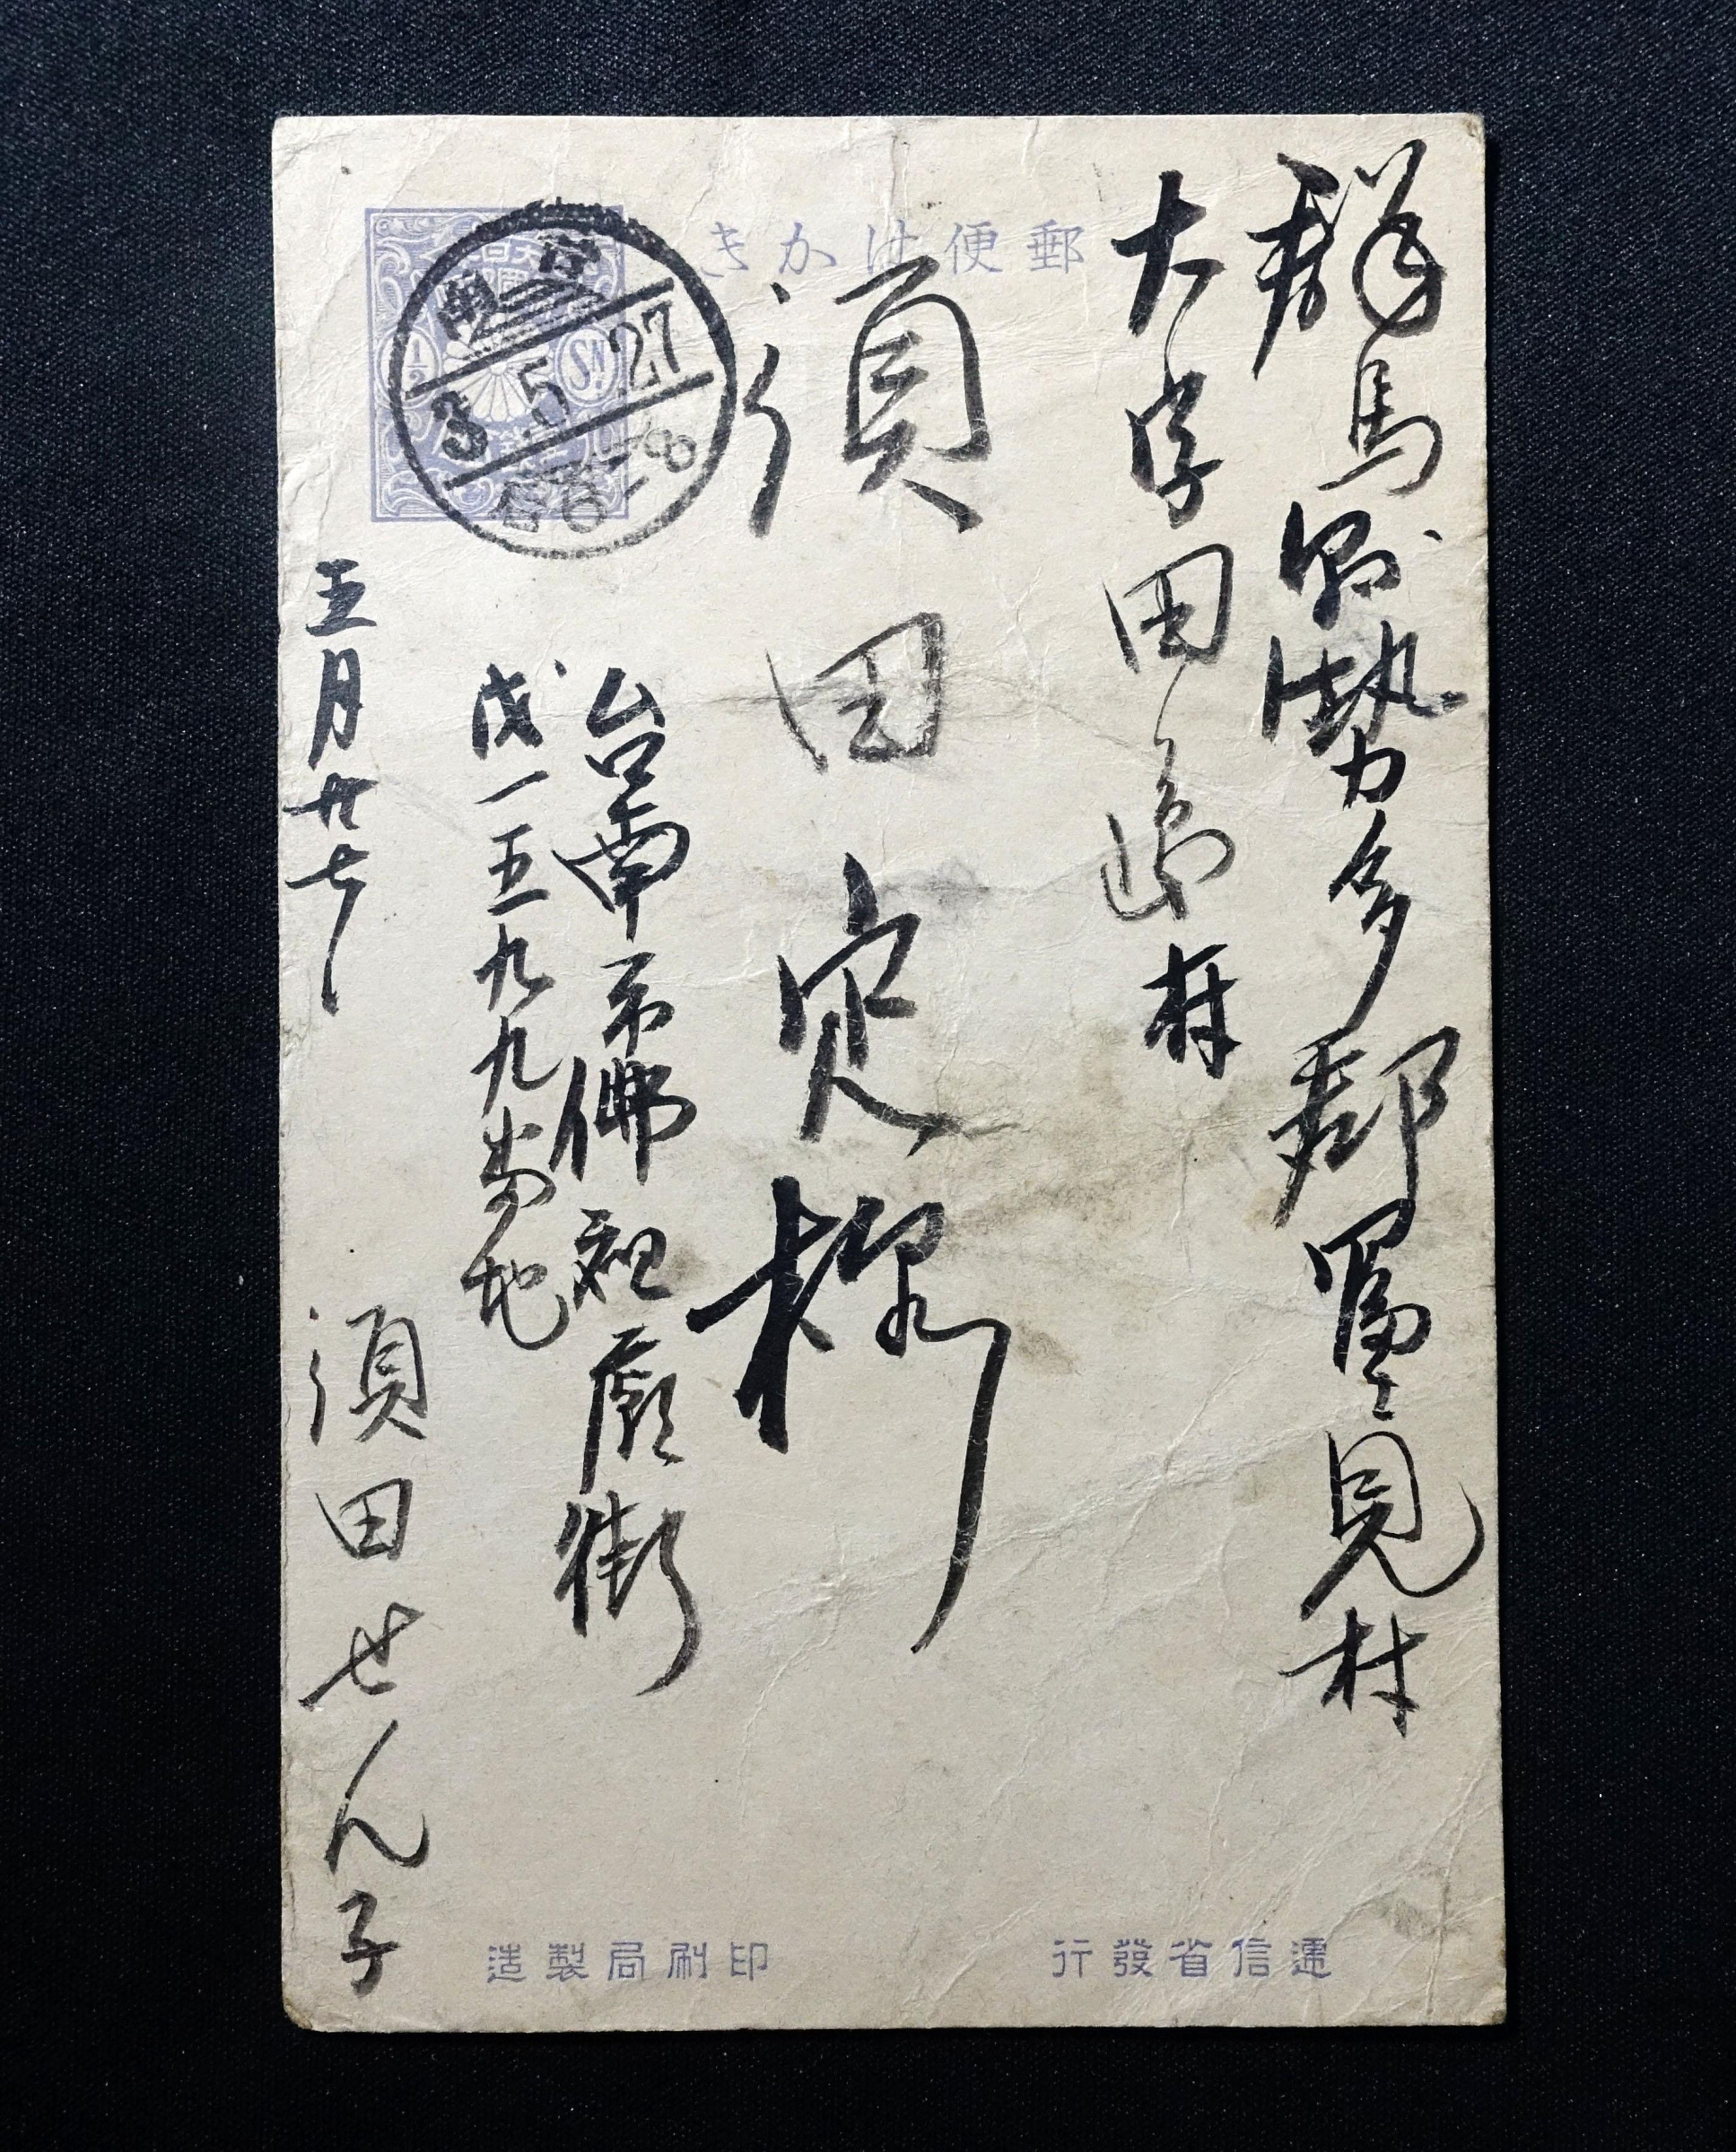 郵便はかき
群馬縣勢多郡冨士見村
大字田島村
須田定樣
台南市佛祖廟街
戊一五九九番地
五月廿七
須田せん子
3 5 27
1/2 Sn
遞信省發行
印刷局製造